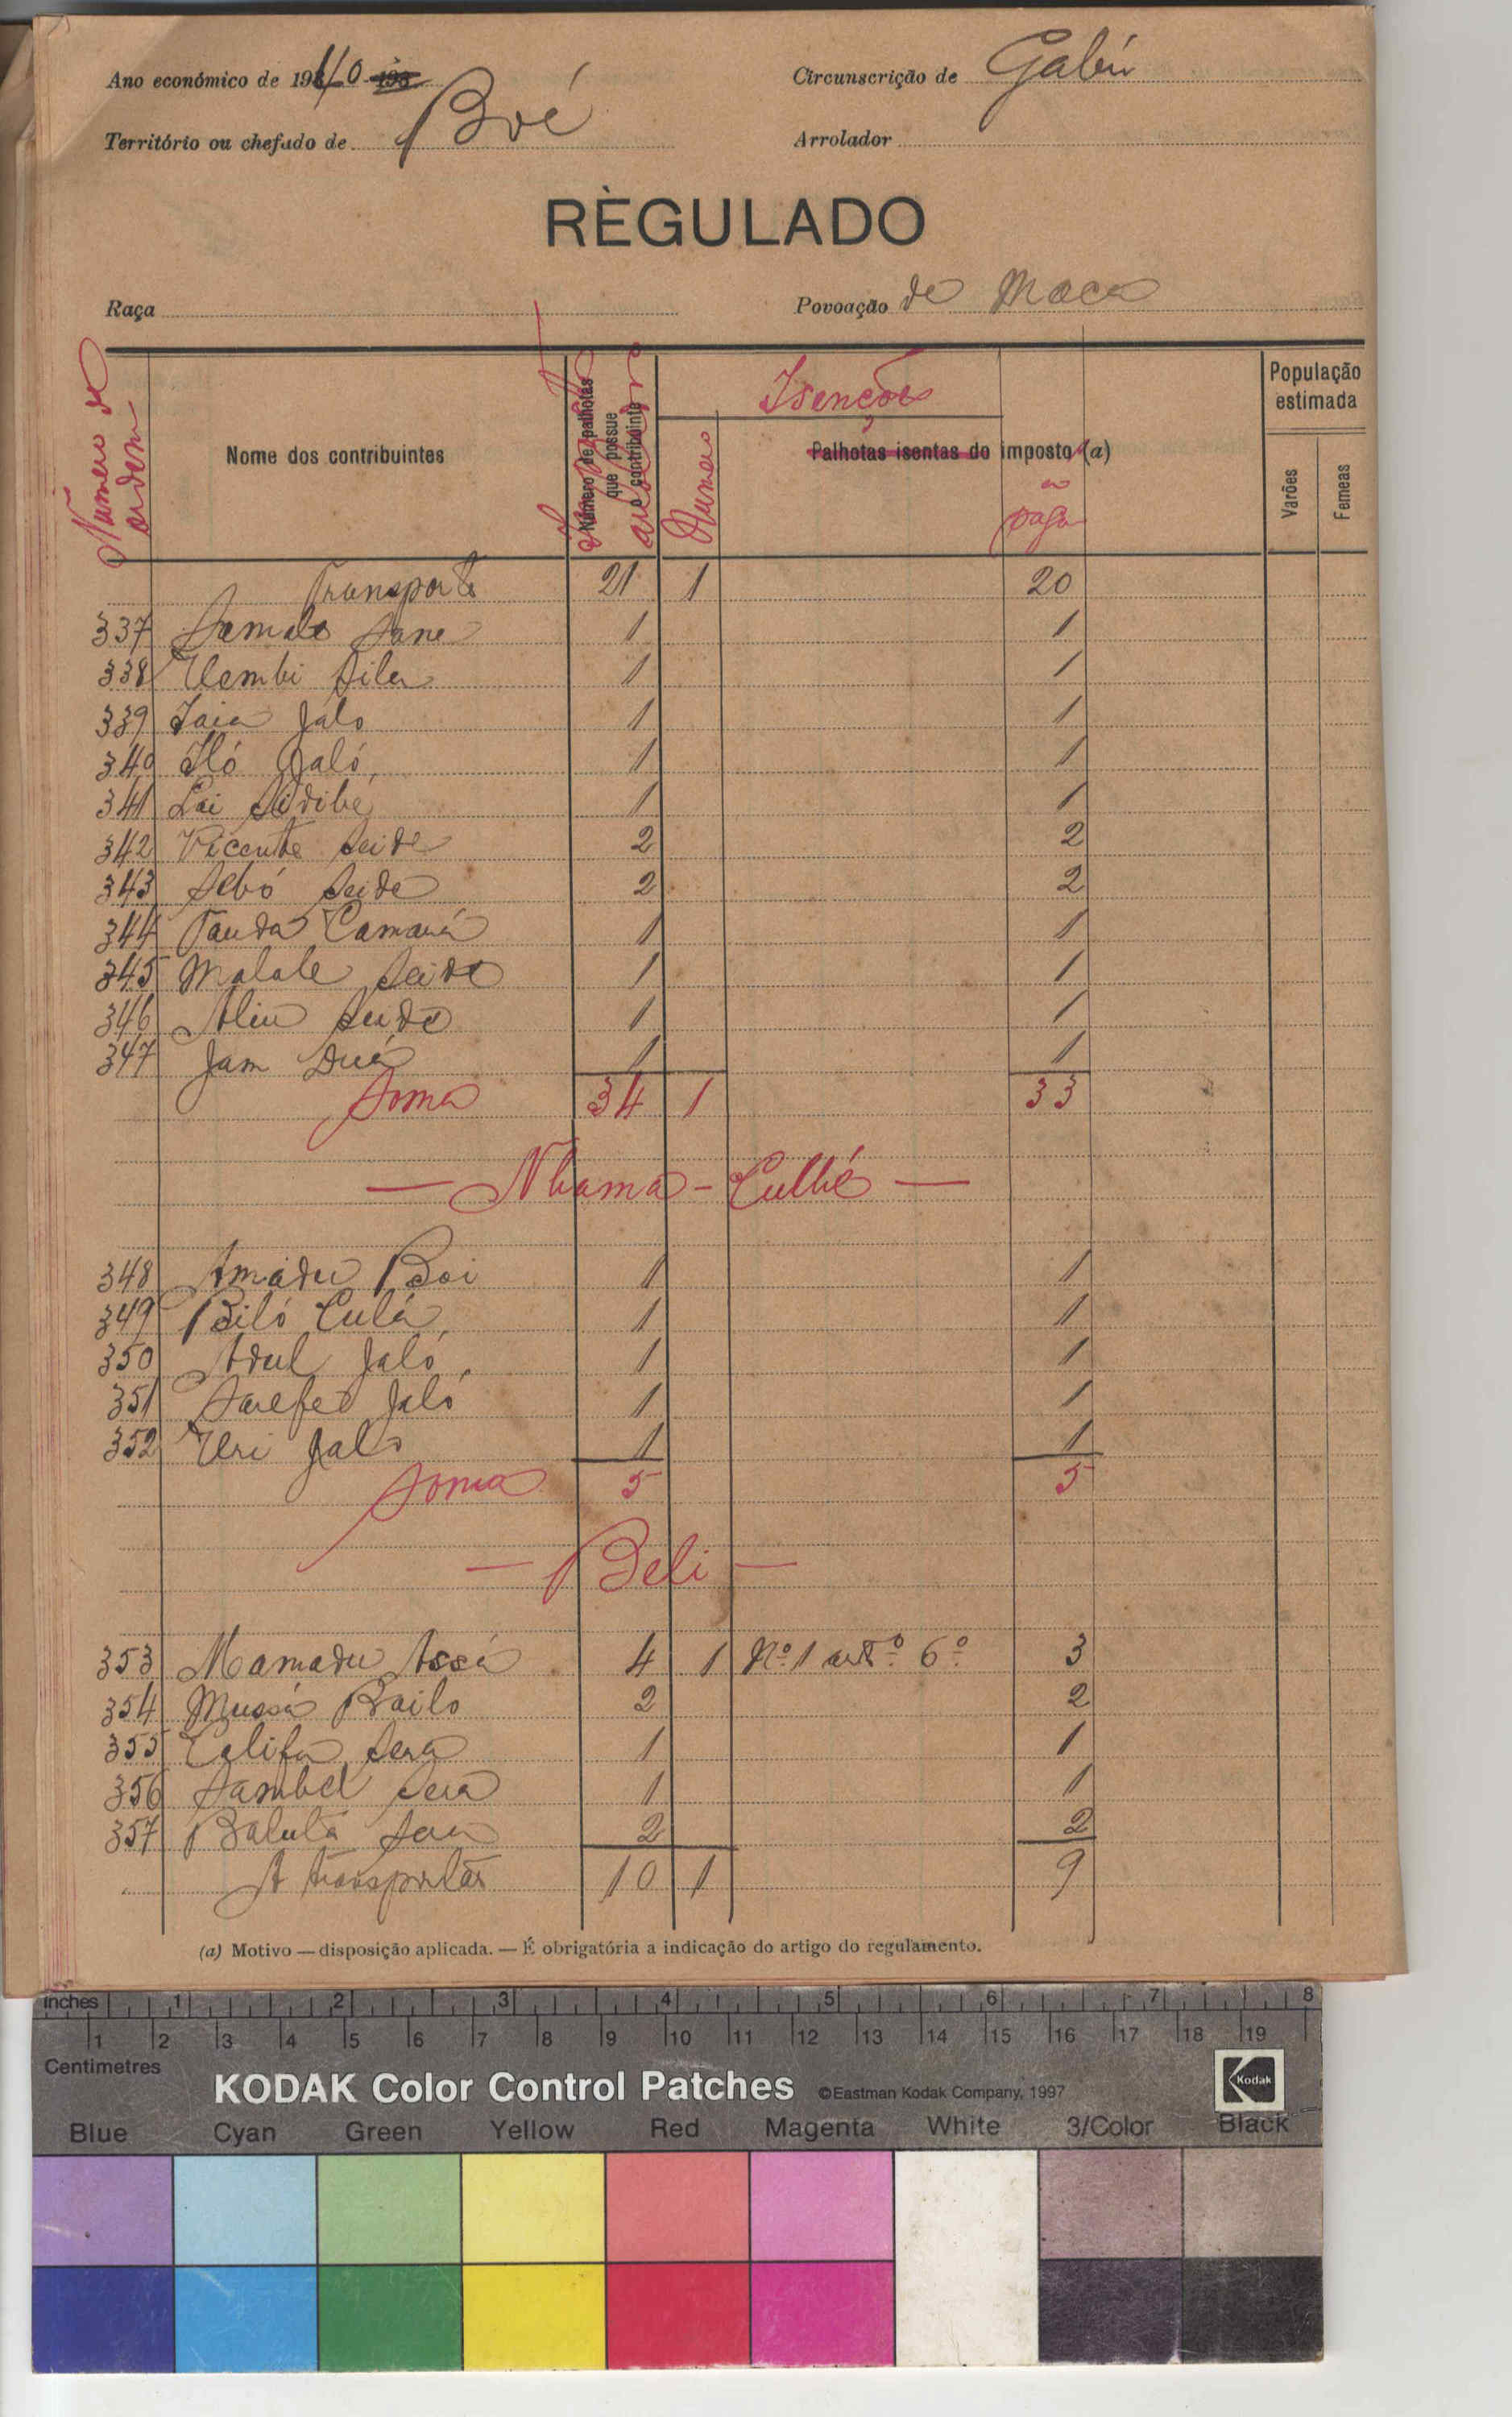 Ano económico de 1940 193
Circunscrição de Gabú
Território ou chefado de Boé
Arrolador
RÈGULADO
Raça
Povoação de Maca
Número de ordem
Nome dos contribuintes
Número de palhotas que possue o contribuinte
Isenções
Número
Palhotas isentas do imposto (a)
a pagar
População estimada
Varões
Femeas
Transporte 21 1 20
337 Samalo Sane 1 1
338 Uembi Sila 1 1
339 Iaia Jaló 1 1
340 Iló Jaló 1 1
341 Lai Sidibé 1 1
342 Vicente Seide 2 2
343 Sebó Seide 2 2
344 Tauda Camará 1 1
345 Malale Seide 1 1
346 Aliu Seide 1 1
347 Jam Duá 1 1
Soma 34 1 33
— Nhama - Culhé —
348 Amadu Boi 1 1
349 Biló Culá 1 1
350 Adul Jaló 1 1
351 Jaló 1 1
352 Uri Jaló 1 1
Soma 5 5
— Beli —
353 Mamadu Assá 4 1 Nº 1 artº 6º 3
354 Mussá Bailo 2 2
355 Califa Sera 1 1
356 Sambel Sera 1 1
357 Balutá 2 2
A transportar 10 1 9
(a) Motivo — disposição aplicada. — É obrigatória a indicação do artigo do regulamento.
inches 1 2 3 4 5 6 7 8
1 2 3 4 5 6 7 8 9 10 11 12 13 14 15 16 17 18 19
Centimetres
KODAK Color Control Patches ©Eastman Kodak Company, 1997 Kodak
Blue Cyan Green Yellow Red Magenta White 3/Color Black